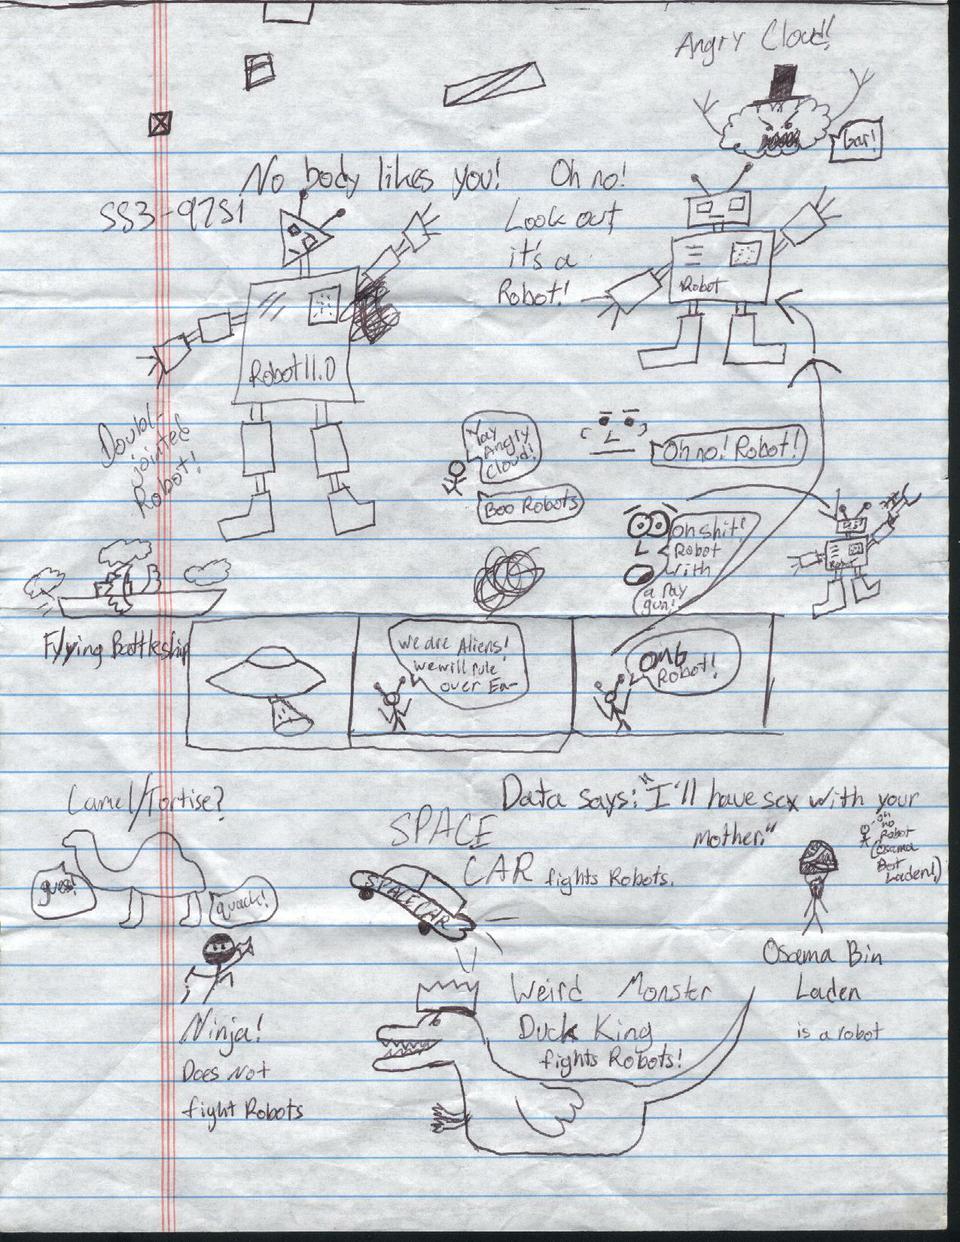 Angry Cloud!
Gar!
No body likes you!
Oh no!
SS3-97S1
Look out
it's a
Robot!
Robot
Robot 11.0
Doubl-
jointed
Robot!
Yay
Angry
Cloud!
Boo Robots
Oh no! Robot!
oh shit!
Robot
with
a ray
gun!
Flying Battleship
We are Aliens!
we will rule
over Ea-
OMG
Robot!
Camel/Tortise?
quack!
Data says: "I'll have sex with your
mother."
SPACE
CAR fights Robots.
SPACE CAR
oh
no
Robot
(Osama
Bot
Laden!)
Osama Bin
Laden
is a robot
Ninja!
Does Not
fight Robots
Weird Monster
Duck King
fights Robots!